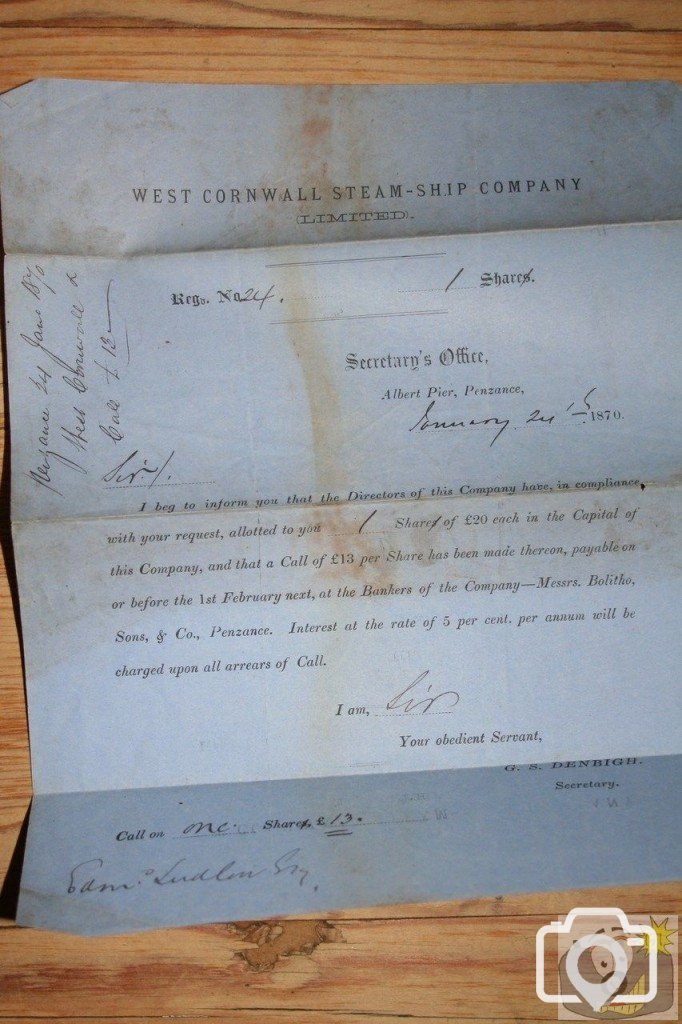 WEST CORNWALL STEAM-SHIP COMPANY
(LIMITED).
Penzance 24 Jany 1870
West Cornwall
Call £13
Regd. No. 24. 1 Shares.
Secretary's Office,
Albert Pier, Penzance,
January 24th 1870.
Sir,
I beg to inform you that the Directors of this Company have, in compliance
with your request, allotted to you 1 Shares of £20 each in the Capital of
this Company, and that a Call of £13 per Share has been made thereon, payable on
or before the 1st February next, at the Bankers of the Company—Messrs. Bolitho,
Sons, & Co., Penzance. Interest at the rate of 5 per cent. per annum will be
charged upon all arrears of Call.
I am, Sir
Your obedient Servant,
G. S. DENBIGH,
Secretary.
Call on one Shares, £13.
Ludlow Esq.